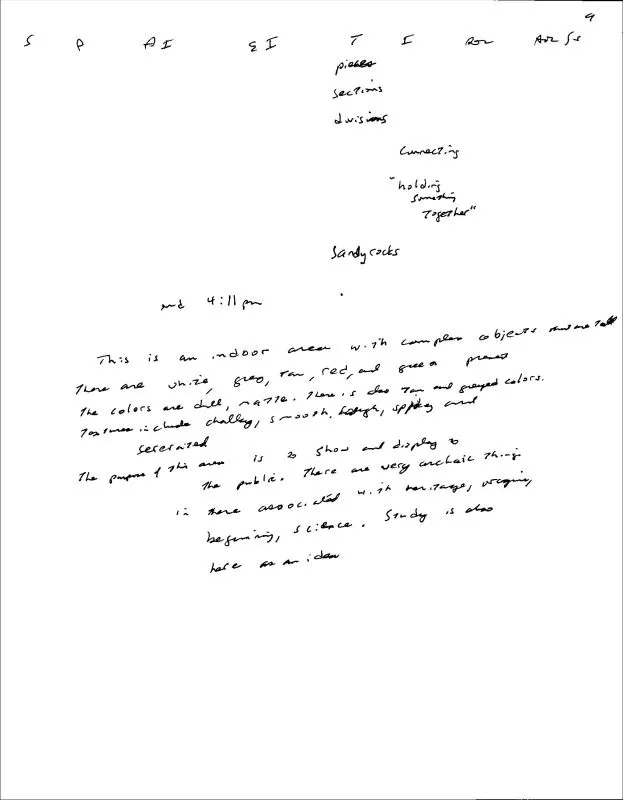 9
S P AI EI T I AOL AOL/S
pieces
sections
divisions
connecting
"holding
something
together"
Sandy rocks
end 4:11 pm
This is an indoor area with complex objects that are tall
There are white, grey, tan, red, and green present
The colors are dull, matte. There is also tan and greyed colors.
Textures include chalky, smooth, rough, spikey and
serrated
The purpose of this area is to show and display to
the public. There are very archaic things
in there associated with heritage, origins,
beginning, science. Study is also
here as an idea